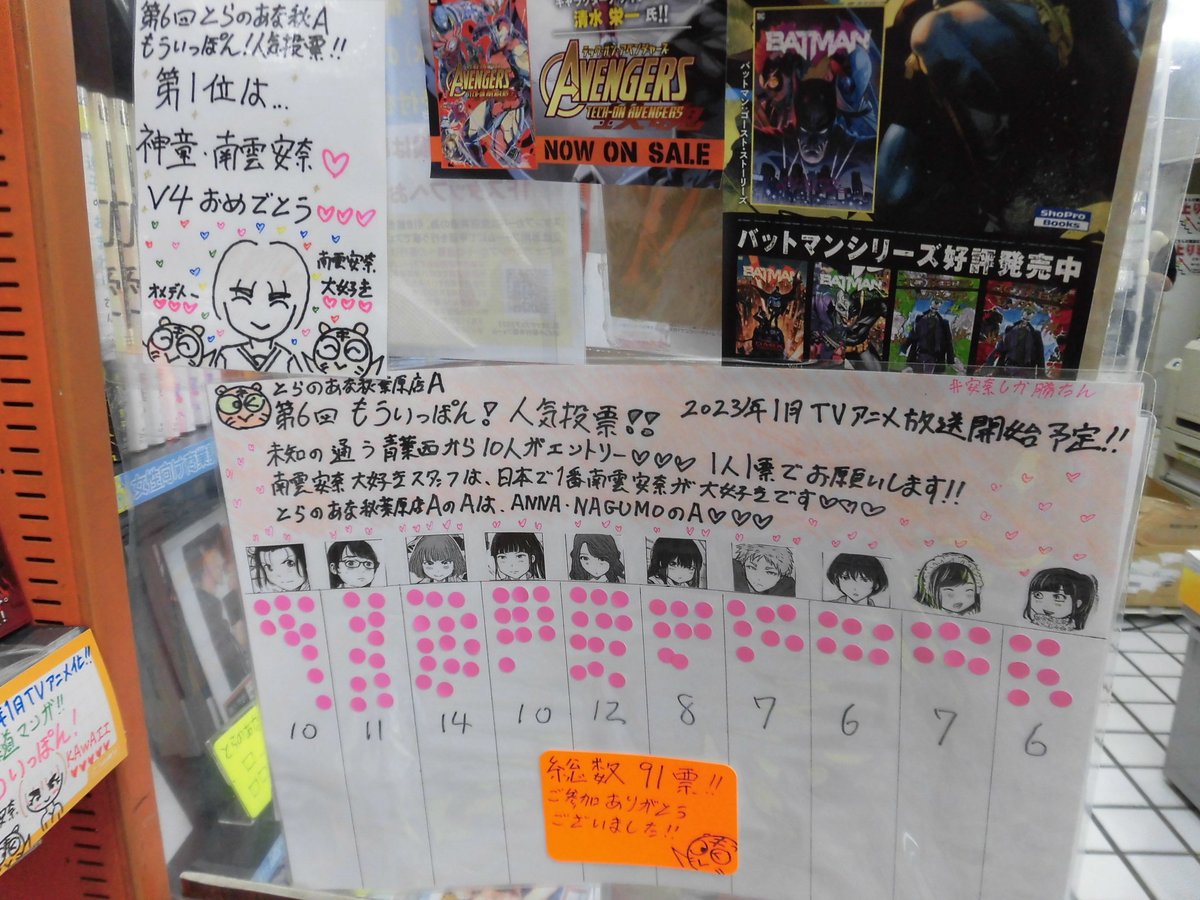 第6回とらのあな秋A
もういっぽん!人気投票!!
第1位は...
神童・南雲安奈♡
V4おめでとう♡♡♡
南雲安奈
大好き
オメデトー
清水 栄一 氏!!
AVENGERS
TECH-ON AVENGERS
AVENGERS
TECH-ON AVENGERS
NOW ON SALE
BATMAN
バットマン:ゴースト・ストーリーズ
ShoPro
Books
バットマンシリーズ好評発売中
BATMAN
BATMAN
#安奈しか勝たん
とらのあな秋葉原店A
第6回 もういっぽん! 人気投票!! 2023年1月TVアニメ放送開始予定!!
未知の通う青葉西から10人がエントリー♡♡♡ 1人1票でお願いします!!
南雲安奈大好きスタッフは、日本で1番南雲安奈が大好きです♡♡♡
とらのあな秋葉原店AのAは、ANNA・NAGUMOのA♡♡♡
10 11 14 10 12 8 7 6 7 6
総数 91票!!
ご参加ありがとう
ございました!!
女性向け
年1月TVアニメ化!!
道マンガ!!
いっぽん!
KAWAII